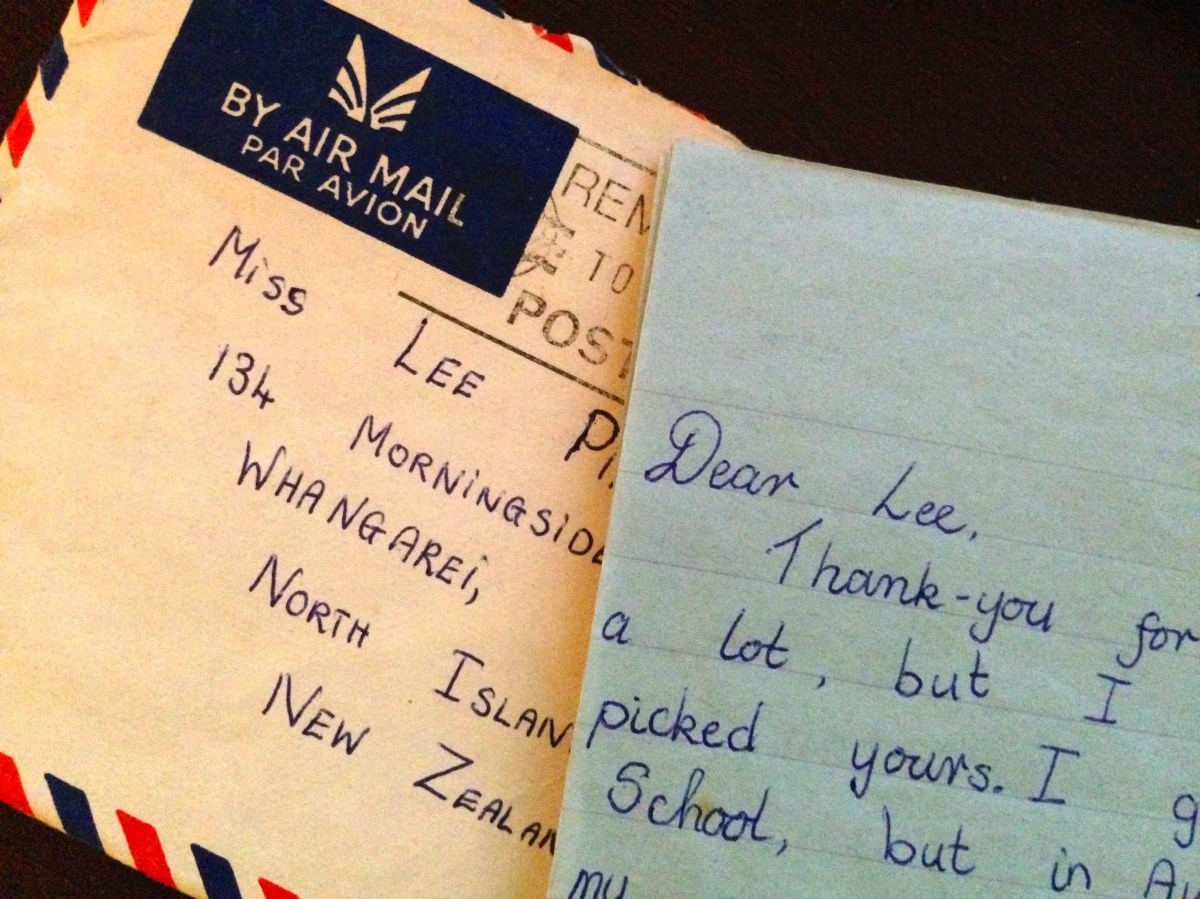 BY AIR MAIL
PAR AVION
REM
TO
POST
Miss Lee Pi
134 Morningside
Whangarei,
North Islan
New Zealan
Dear Lee,
Thank-you for
a lot, but I
picked yours. I g
School, but in Au
my